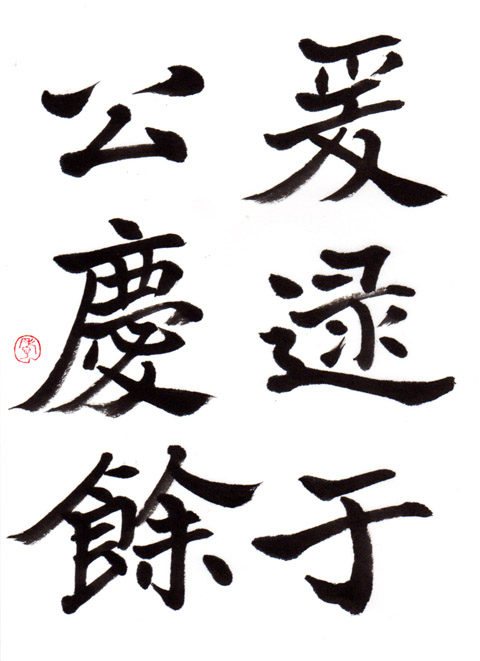 爰逮于
公慶餘